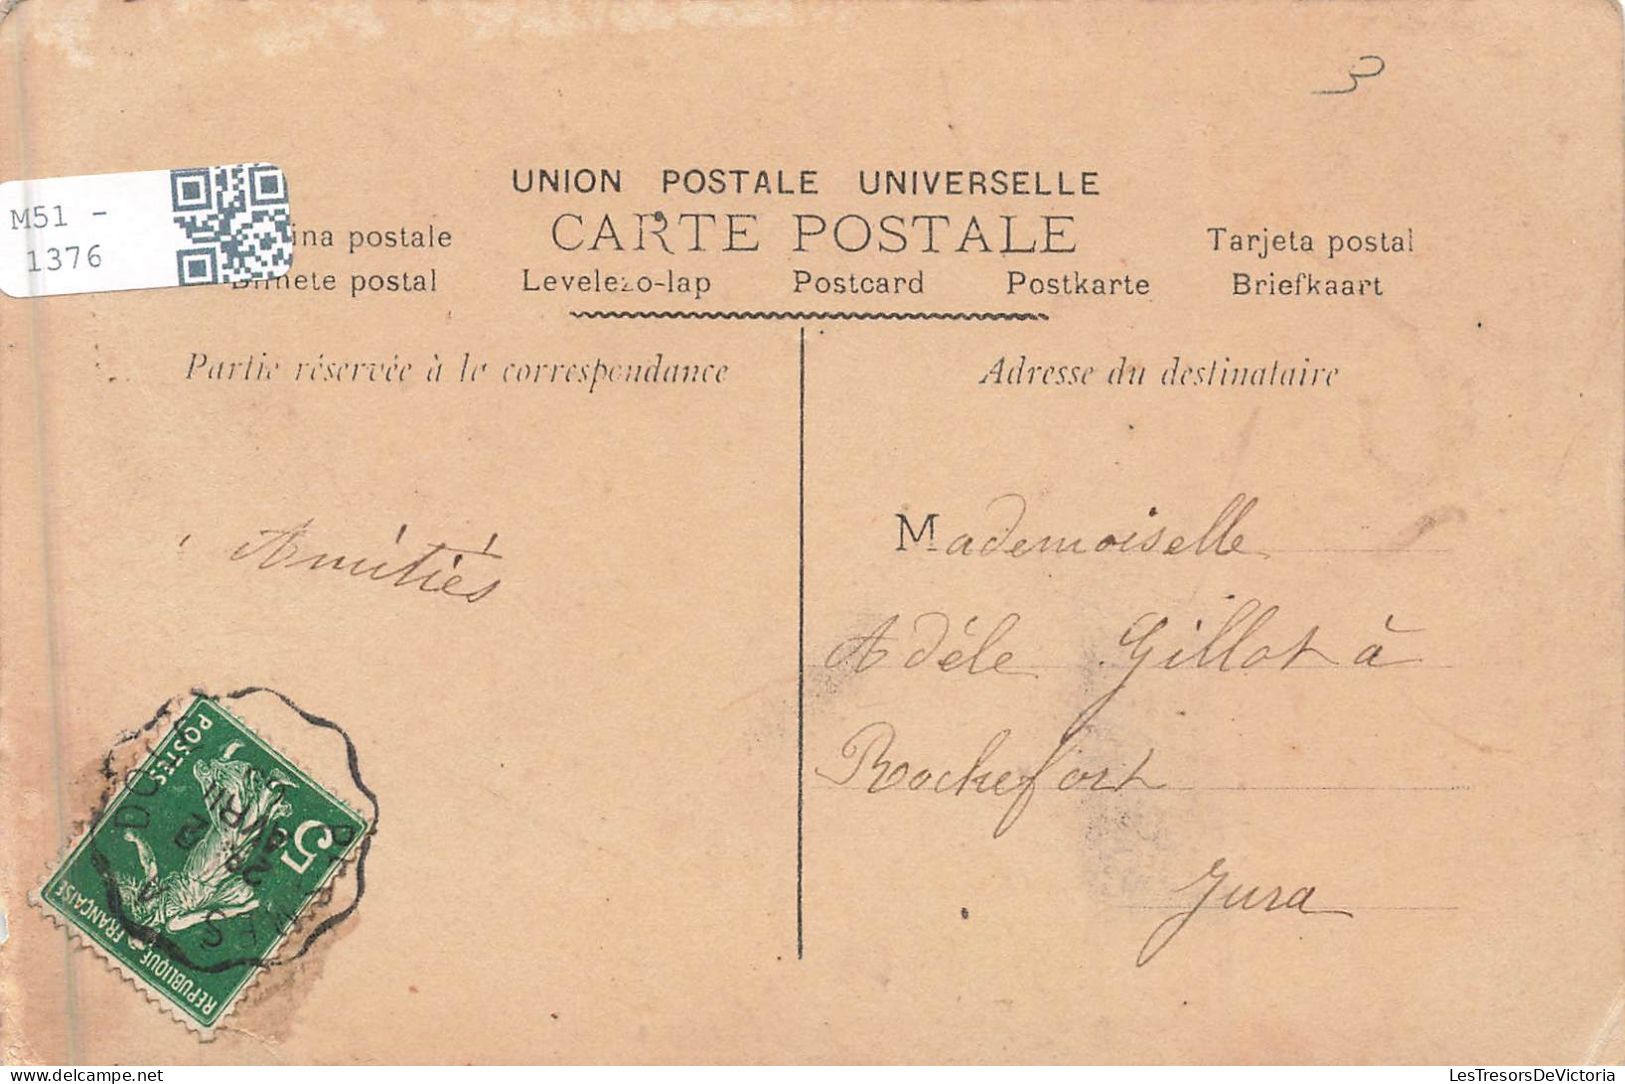 3
M51 -
1376
UNION POSTALE UNIVERSELLE
CARTE POSTALE
ina postale
Tarjeta postal
postal
Levelezo-lap
Postcard
Postkarte
Briefkaart
Partie réservée à la correspondance
Adresse du destinataire
Amitiés
Mademoiselle
Adèle Gillot à
Rochefort
Jura
POSTES
5
REPUBLIQUE FRANÇAISE
28
AVRIL
delcampe.net
LesTresorsDeVictoria